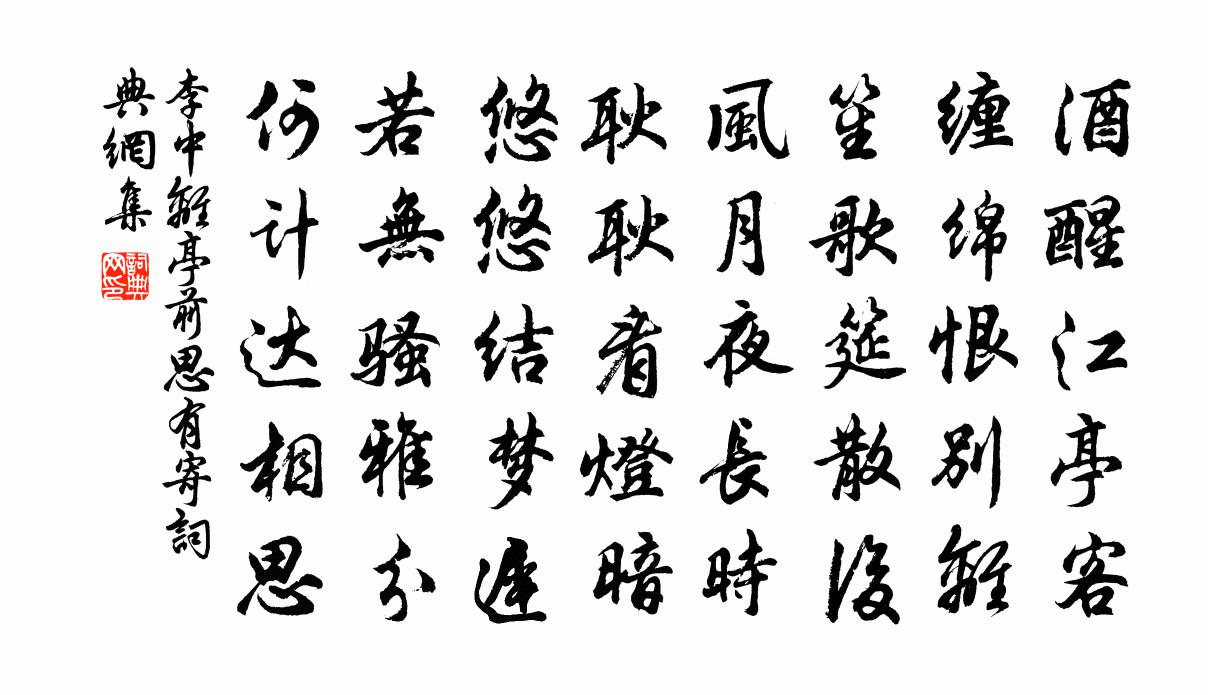 酒醒江亭客
缠绵恨别離
笙歌筵散後
風月夜長時
耿耿看燈暗
悠悠结梦遲
若無騷雅分
何计达相思
李中離亭前思有寄詞
典網集
詞典
网印